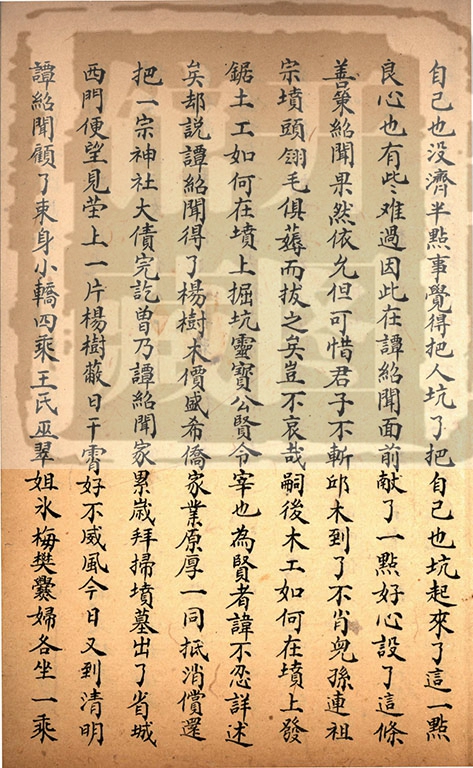 自己也没濟半點事覺得把人坑了把自己也坑起來了這一點
良心也有些难過因此在譚紹聞面前献了一點好心設了這條
善策紹聞果然依允但可惜君子不斬邱木到了不肖兒孫連祖
宗墳頭翎毛俱薅而拔之矣豈不哀哉嗣後木工如何在墳上發
鋸土工如何在墳上掘坑靈寶公賢令宰也為賢者諱不忍詳述
矣却説譚紹聞得了楊樹木價盛希僑家業原厚一同抵消償還
把一宗神社大債完訖曾乃譚紹聞家累歲拜掃墳墓出了省城
西門便望見茔上一片楊樹蔽日干霄好不威風今日又到清明
譚紹聞顧了東身小轎四乘王氏巫翠姐氷梅樊爨婦各坐一乘